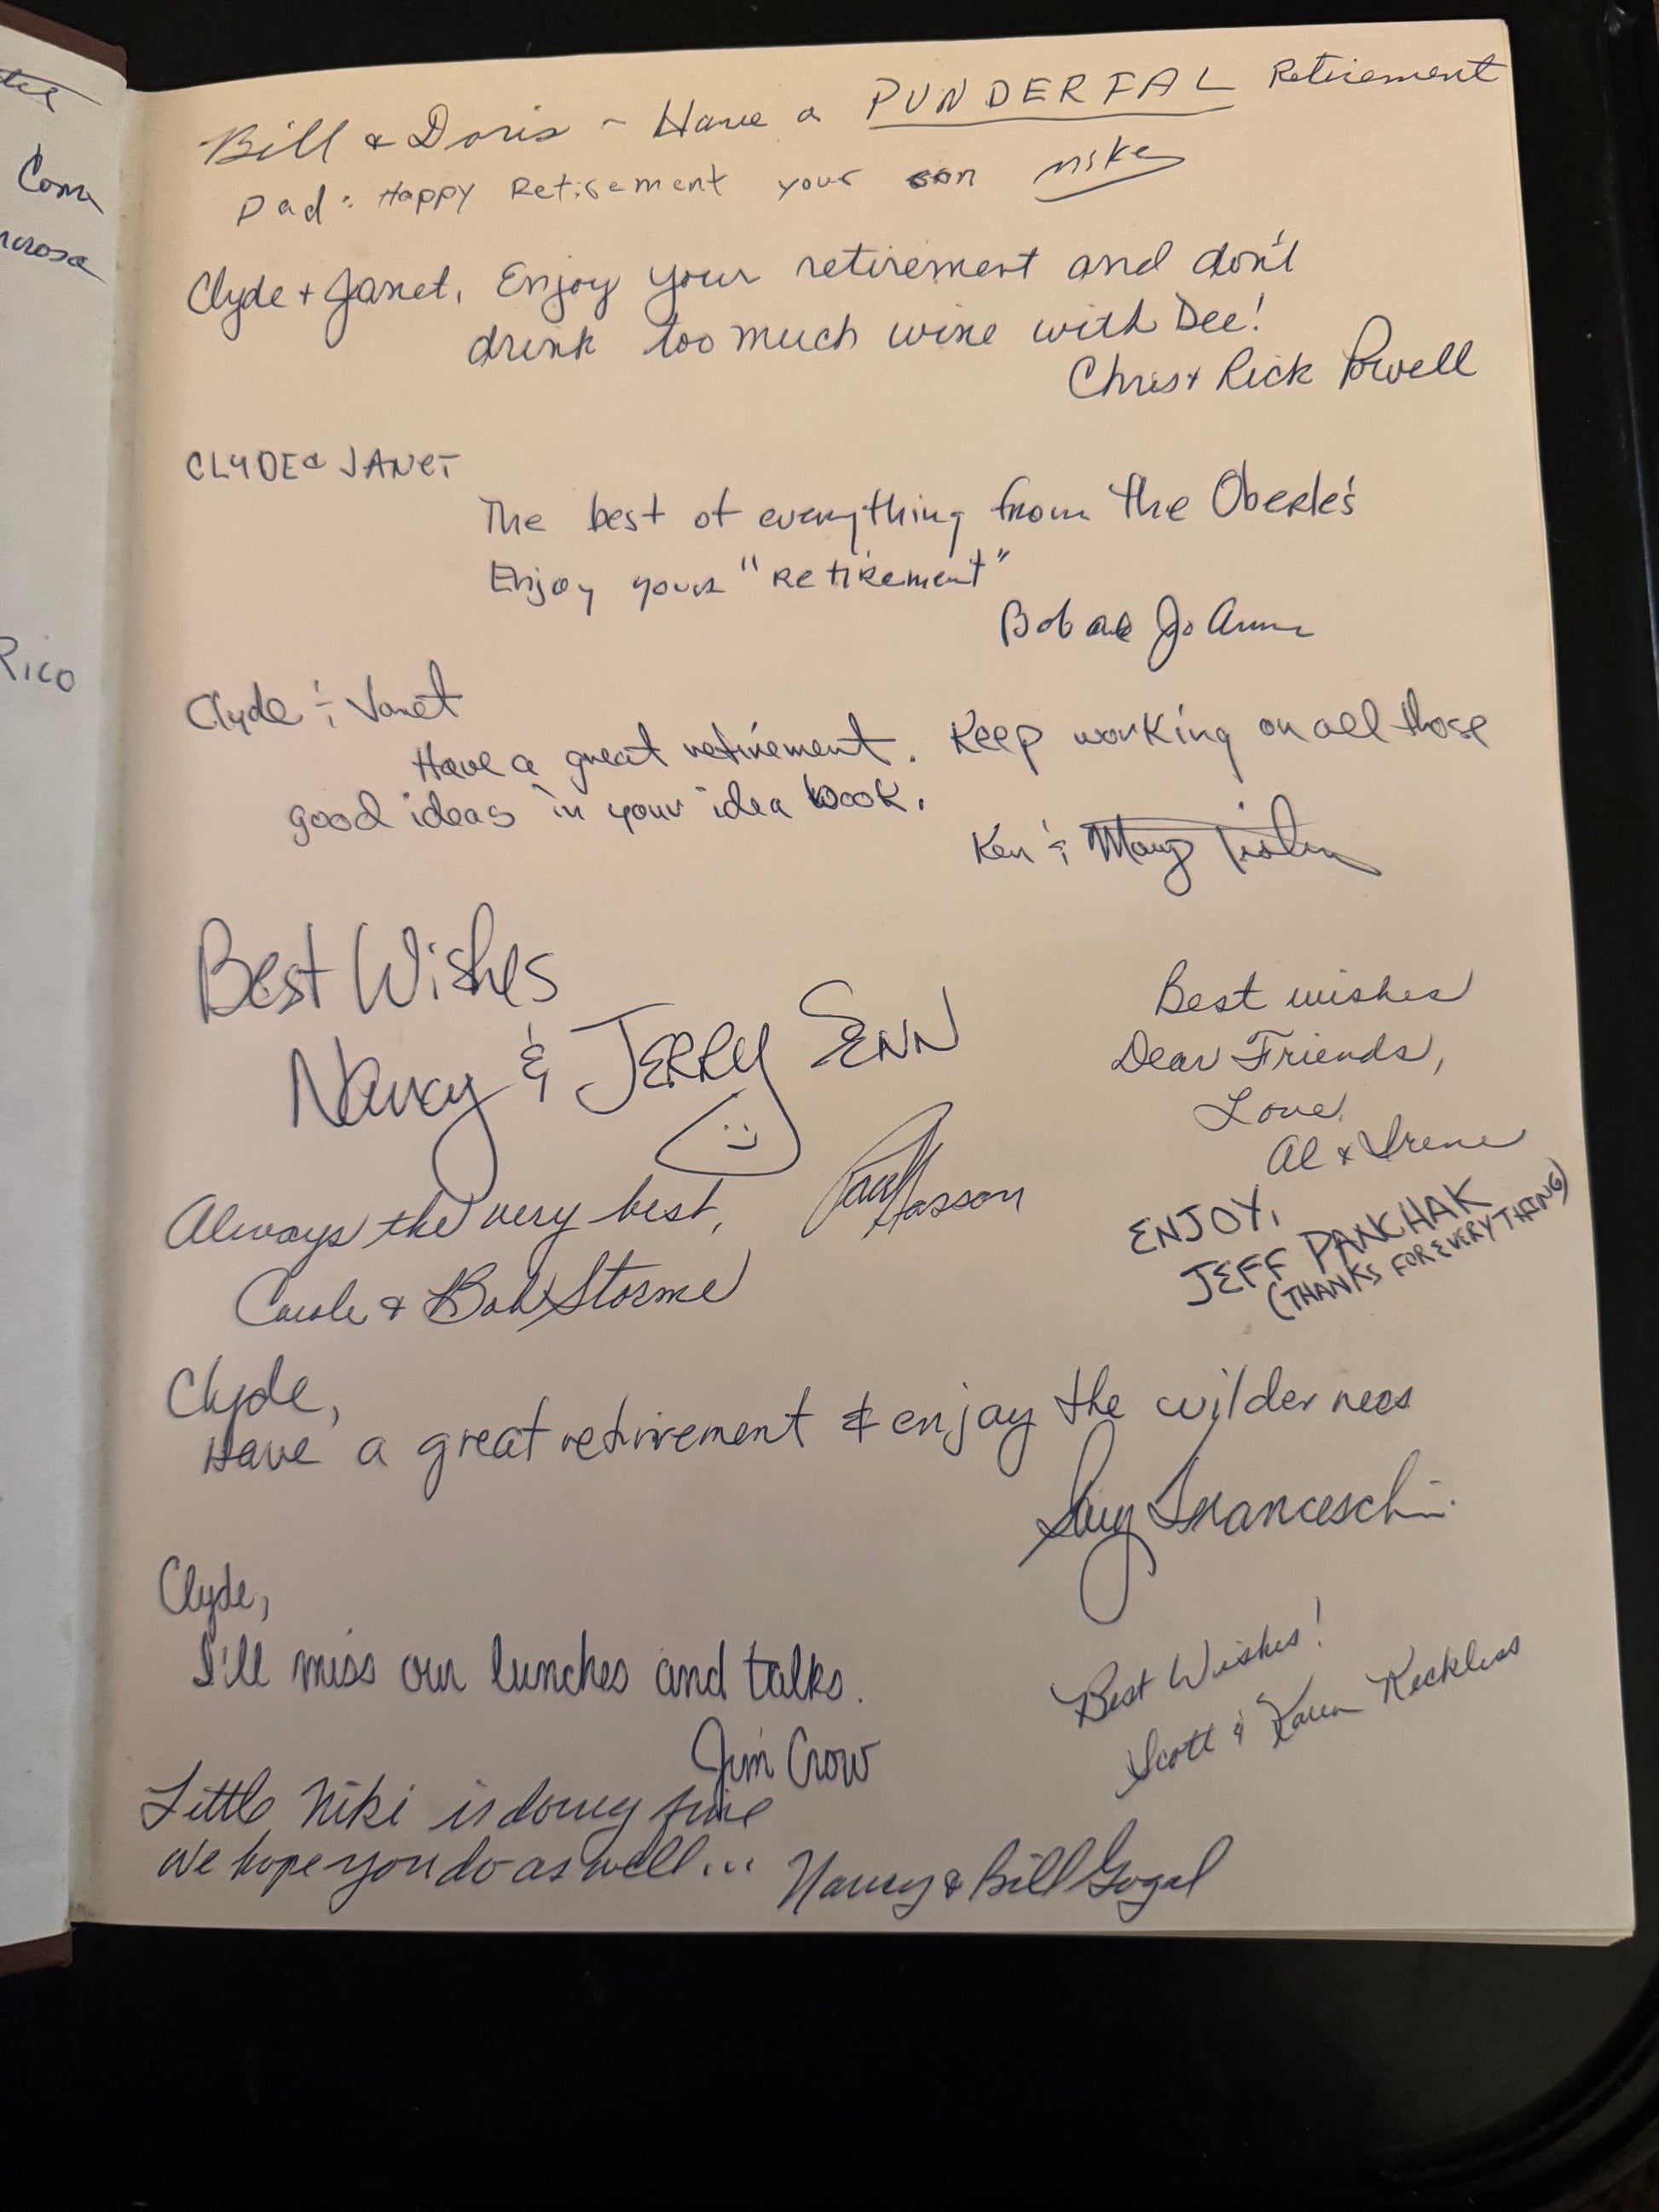 Com
Rico
Bill & Doris ~ Have a PUNDERFAL Retirement
Dad: Happy Retirement your son Mike
Clyde + Janet, Enjoy your retirement and don't
drink too much wine with Dee!
Chris + Rick Powell
CLYDE & JANET
The best of everything from the Oberle's
Enjoy your "retirement"
Bob and Jo Anne
Clyde & Janet
Have a great retirement. Keep working on all those
good ideas in your idea book.
Ken & Mary
Best Wishes
Nancy & JERRY SENN
Best wishes
Dear Friends,
Love,
Al & Irene
Always the very best,
Carole & Bob Storme
Paul Hasson
ENJOY,
JEFF PANCHAK
(THANKS FOR EVERYTHING)
Clyde,
Have a great retirement & enjoy the wilderness
Guy Franceschi
Clyde,
I'll miss our lunches and talks.
Jim Crow
Best Wishes!
Scott & Karen Keckless
Little Niki is doing fine
We hope you do as well...
Nancy & Bill Gogal